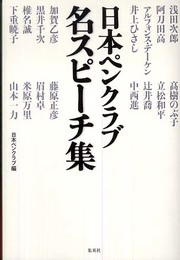 浅田次郎
阿刀田高
アルフォンス・デーケン
井上ひさし
加賀乙彦
黒井千次
椎名誠
下重暁子
日本ペンクラブ
名スピーチ集
高樹のぶ子
立松和平
辻井喬
中西進
藤原正彦
眉村卓
米原万里
山本一力
日本ペンクラブ編
集英社